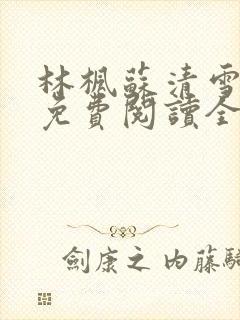 林楓蘇清雪
免費閱讀全
劍康之內藤騎